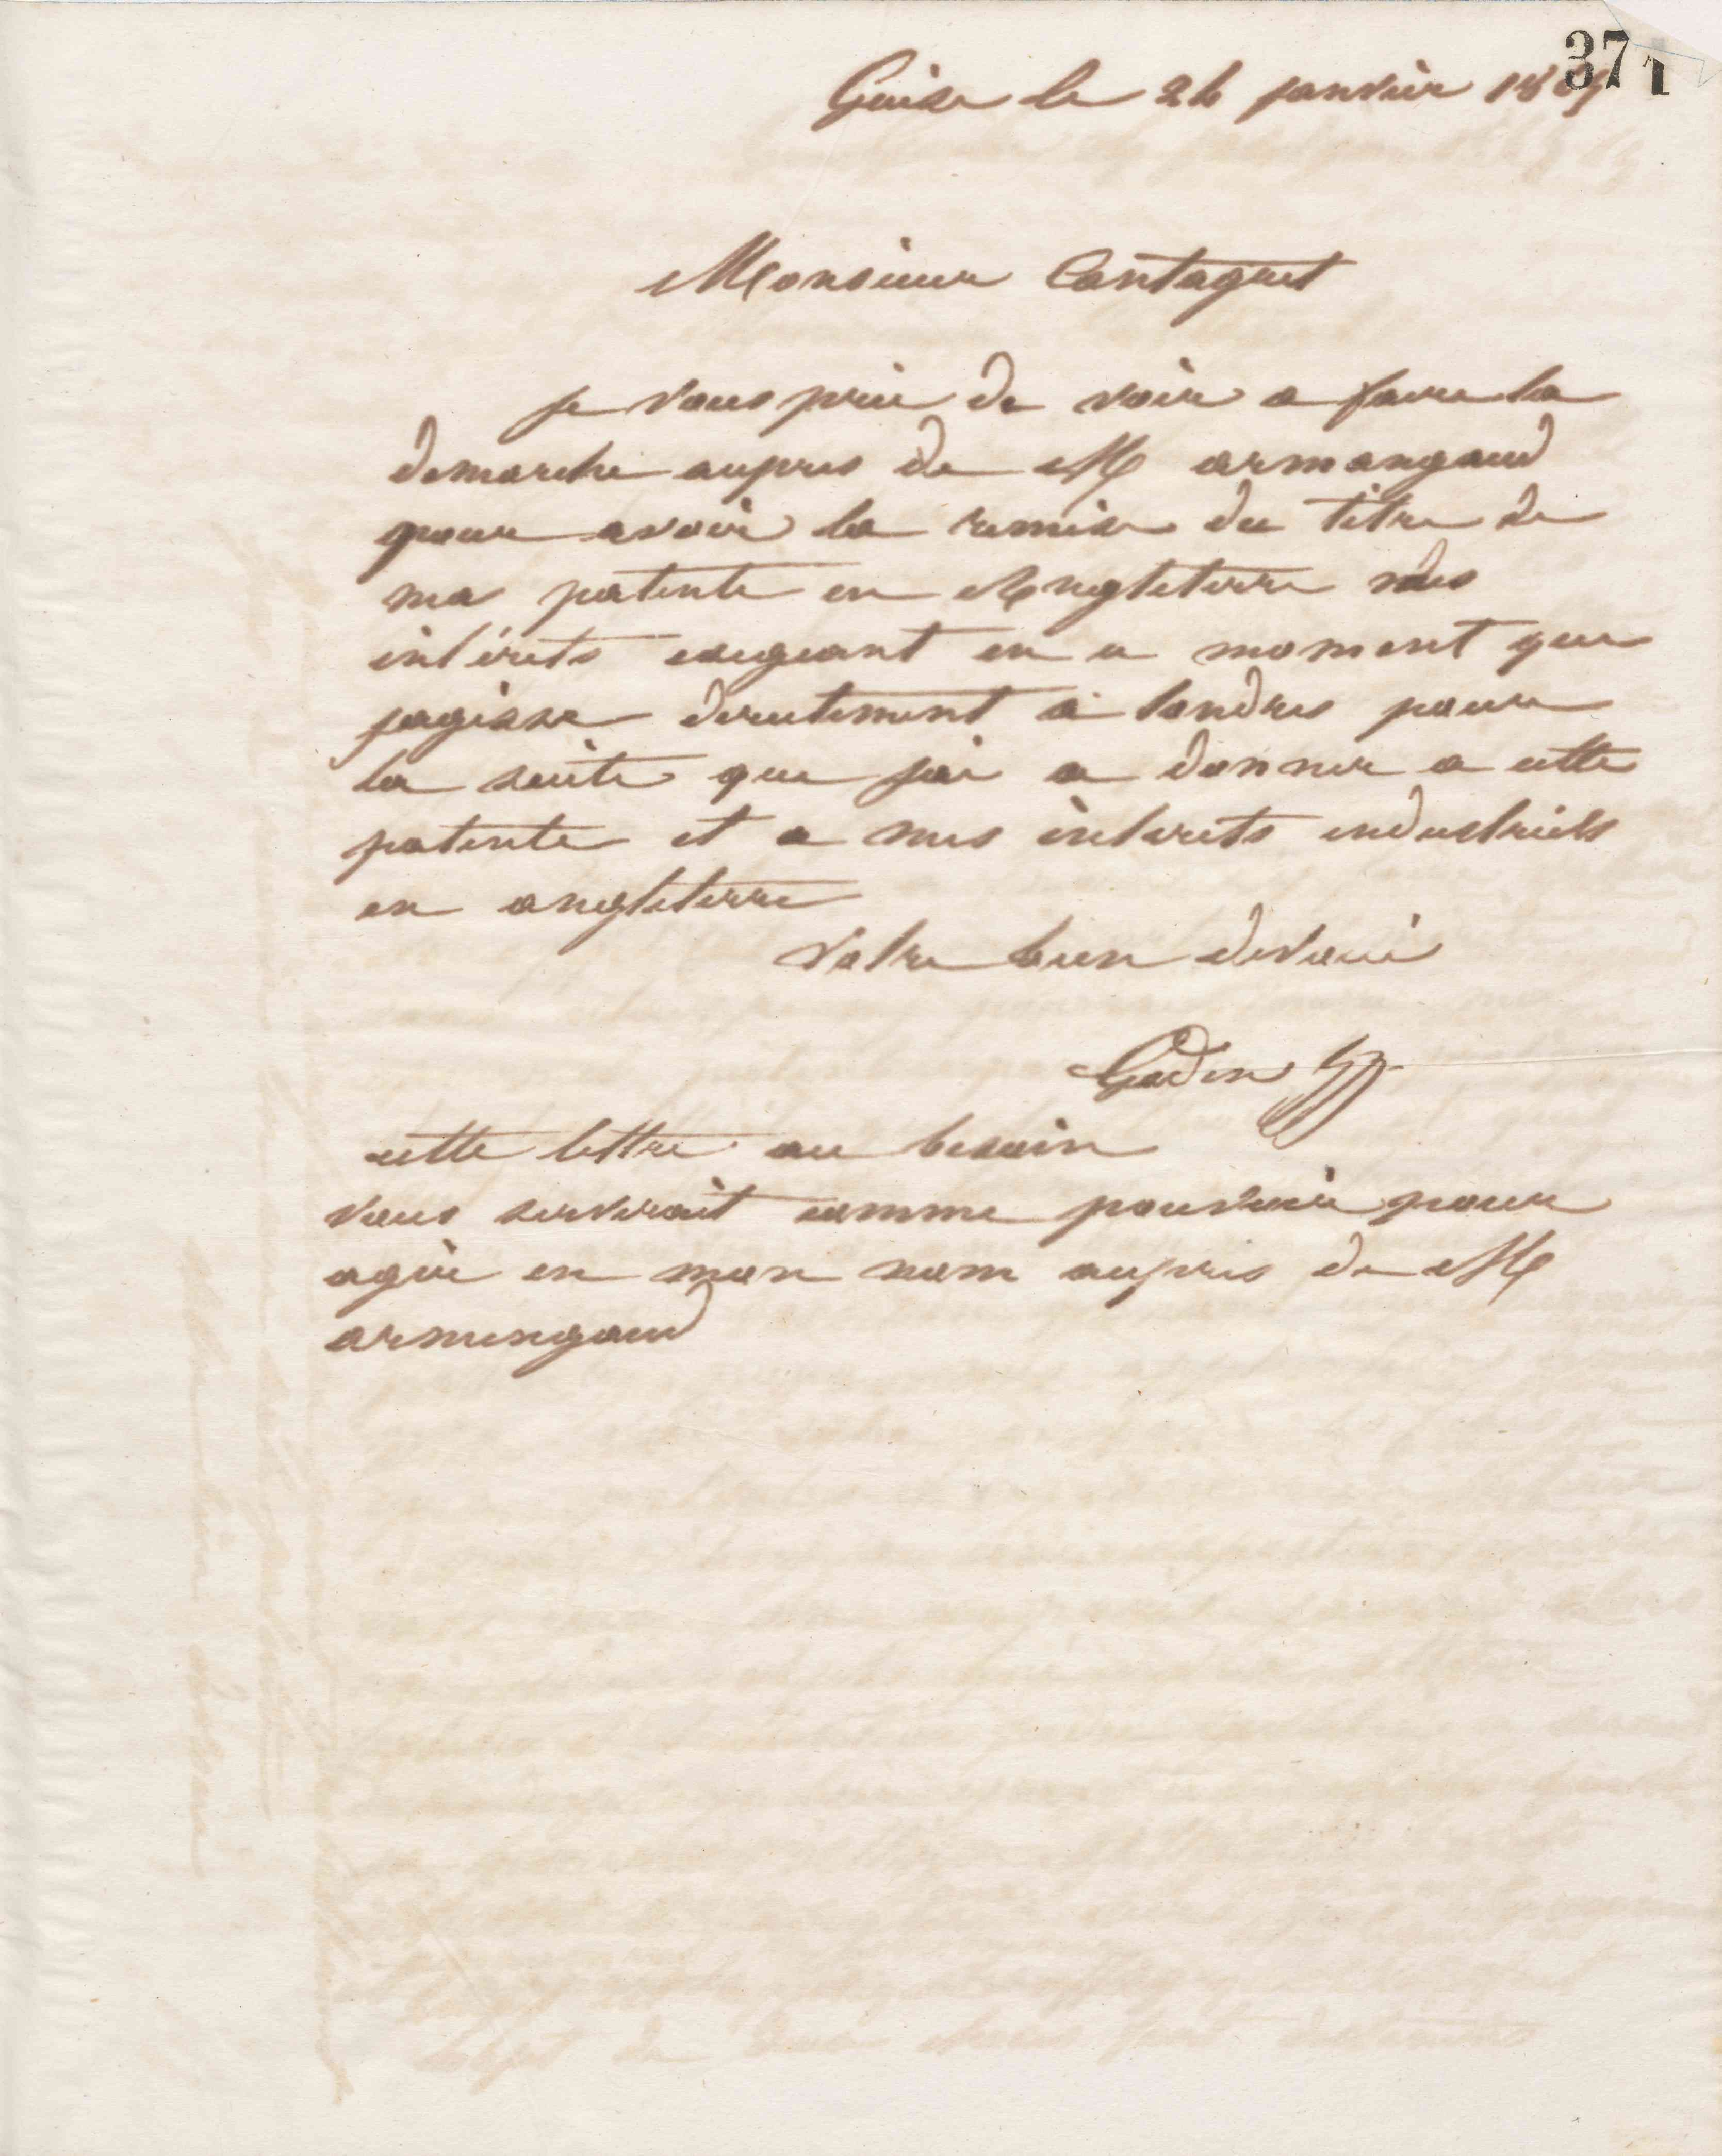 371
Guise le 24 janvier 186
Monsieur Cantagrel
je vous prie de voir a faire la
demarche aupres de M armangaud
pour avoir la remise du titre de
ma patente en Angleterre mes
intérets exigeant en ce moment que
jagisse directement à londres pour
la suite que jai a donner a cette
patente et a mes intérets industriels
en angleterre
Votre bien devoué
Godin
cette lettre au besoin
vous serverait comme pouvoir pour
agir en mon nom aupres de M
armengaud